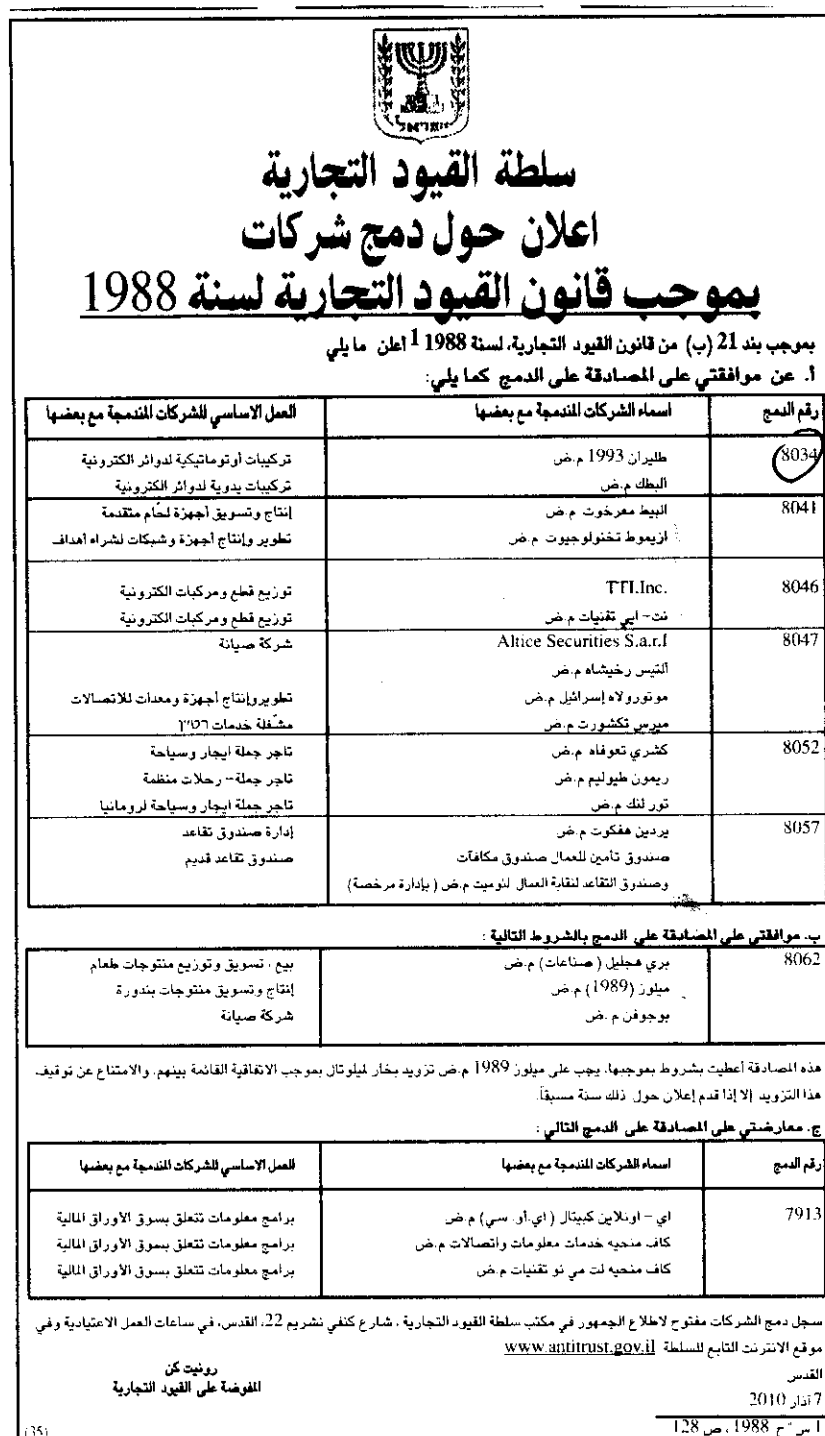 سلطة القيود التجارية
اعلان حول دمج شركات
بموجب قانون القيود التجارية لسنة 1988
بموجب بند 21 (ب) من قانون القيود التجارية، لسنة 1988 1 أعلن ما يلي
أ. عن موافقتي على المصادقة على الدمج كما يلي:
رقم الدمج اسماء الشركات المندمجة مع بعضها العمل الاساسي للشركات المندمجة مع بعضها
8034 طليران 1993 م.ض تركيبات أوتوماتيكية لدوائر الكترونية
البطك م.ض تركيبات يدوية لدوائر الكترونية
8041 البيط معرخوت م.ض إنتاج وتسويق أجهزة لحّام متقدمة
ازيموط تخنولوجيوت م.ض تطوير وإنتاج أجهزة وشبكات لشراء أهداف
8046 TTI.Inc. توزيع قطع ومركبات الكترونية
نت- ايي تقنيات م.ض توزيع قطع ومركبات الكترونية
8047 Altice Securities S.a.r.l شركة صيانة
ألتيس رخيشاه م.ض
موتورولاه إسرائيل م.ض تطوير وإنتاج أجهزة ومعدات للاتصالات
ميرس تكشورت م.ض مشغلة خدمات רט"ן
8052 كشري تعوفاه م.ض تاجر جملة ايجار وسياحة
ريمون طيوليم م.ض تاجر جملة- رحلات منظمة
تور لنك م.ض تاجر جملة ايجار وسياحة لرومانيا
8057 يردين هفكوت م.ض إدارة صندوق تقاعد
صندوق تأمين للعمال صندوق مكافآت صندوق تقاعد قديم
وصندوق التقاعد لنقابة العمال لئوميت م.ض (بإدارة مرخصة)
ب. موافقتي على المصادقة على الدمج بالشروط التالية :
8062 بري هجليل (صناعات) م.ض بيع ، تسويق وتوزيع منتوجات طعام
ميلوز (1989) م.ض إنتاج وتسويق منتوجات بندورة
بوجوفن م.ض شركة صيانة
هذه المصادقة أعطيت بشروط بموجبها، يجب على ميلوز 1989 م.ض تزويد بخار لميلوتال بموجب الاتفاقية القائمة بينهم، والامتناع عن توقيف
هذا التزويد إلا إذا قدم إعلان حول ذلك سنة مسبقاً.
ج. معارضتي على المصادقة على الدمج التالي :
رقم الدمج اسماء الشركات المندمجة مع بعضها العمل الاساسي للشركات المندمجة مع بعضها
7913 اي - اونلاين كبيتال (اي.أو. سي) م.ض برامج معلومات تتعلق بسوق الأوراق المالية
كاف منحيه خدمات معلومات واتصالات م.ض برامج معلومات تتعلق بسوق الأوراق المالية
كاف منحيه لت مي نو تقنيات م.ض برامج معلومات تتعلق بسوق الأوراق المالية
سجل دمج الشركات مفتوح لاطلاع الجمهور في مكتب سلطة القيود التجارية ، شارع كنفي نشريم 22، القدس، في ساعات العمل الاعتيادية وفي
موقع الانترنت التابع للسلطة www.antitrust.gov.il
رونيت كن
المفوضة على القيود التجارية
القدس
7 آذار 2010
1 س "ح 1988 ، ص 128
(35)